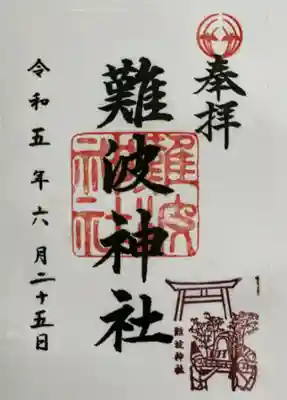 奉拝
難波神社
難波神社
難波神社
令和五年六月二十五日